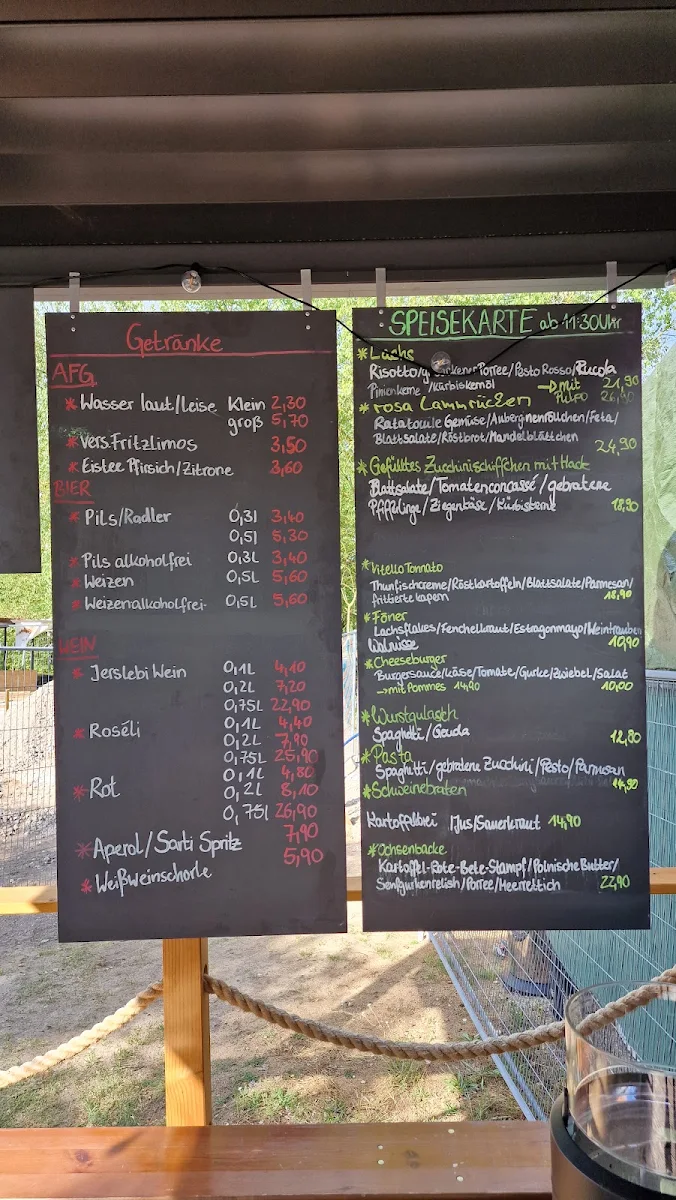 Getränke
AFG
* Wasser laut/leise Klein 2,30
groß 5,70
* Vers. Fritzlimos 3,50
* Eistee Pfirsich/Zitrone 3,60
BIER
* Pils/Radler 0,3l 3,40
0,5l 5,30
* Pils alkoholfrei 0,3L 3,40
* Weizen 0,5L 5,60
* Weizenalkoholfrei 0,5L 5,60
WEIN
* Jerslebi Wein 0,1L 4,10
0,2L 7,20
0,75L 22,90
* Roséli 0,1L 4,40
0,2L 7,90
0,75L 25,90
* Rot 0,1L 4,80
0,2L 8,10
0,75l 26,90
* Aperol/Sarti Spritz 7,90
* Weißweinschorle 5,90
SPEISEKARTE ab 11:30Uhr
* Lachs
Risotto/ Porree/Pesto Rosso/Rucola
Pinienkerne/Kürbiskernöl → mit 21,90
Pulpo
* rosa Lammrücken
Ratatouile Gemüse/Auberginenröllchen/Feta/
Blattsalate/Röstbrot/Mandelblättchen
24,90
* Gefülltes Zucchinischiffchen mit Hack
Blattsalate/Tomatenconcassé/gebratene
Pfifferlinge/Ziegenkäse/Kürbiskerne 18,90
* Vitello Tonnato
Thunfischcreme/Röstkartoffeln/Blattsalate/Parmesan/
frittierte Kapern 18,90
* Föner
Lachsflakes/Fenchelkraut/Estragonmayo/Weintrauben
Walnüsse 10,90
* Cheeseburger
Burgersauce/Käse/Tomate/Gurke/Zwiebel/Salat
→ mit Pommes 14,90 10,00
* Wurstgulasch
Spaghetti/Gouda 12,80
* Pasta
Spaghetti/gebratene Zucchini/Pesto/Parmesan
14,90
* Schweinebraten
Kartoffelbrei Jus/Sauerkraut 14,90
* Ochsenbacke
Kartoffel-Rote-Bete-Stampf/Polnische Butter/
Senfgurkenrelish/Porree/Meerrettich 22,90